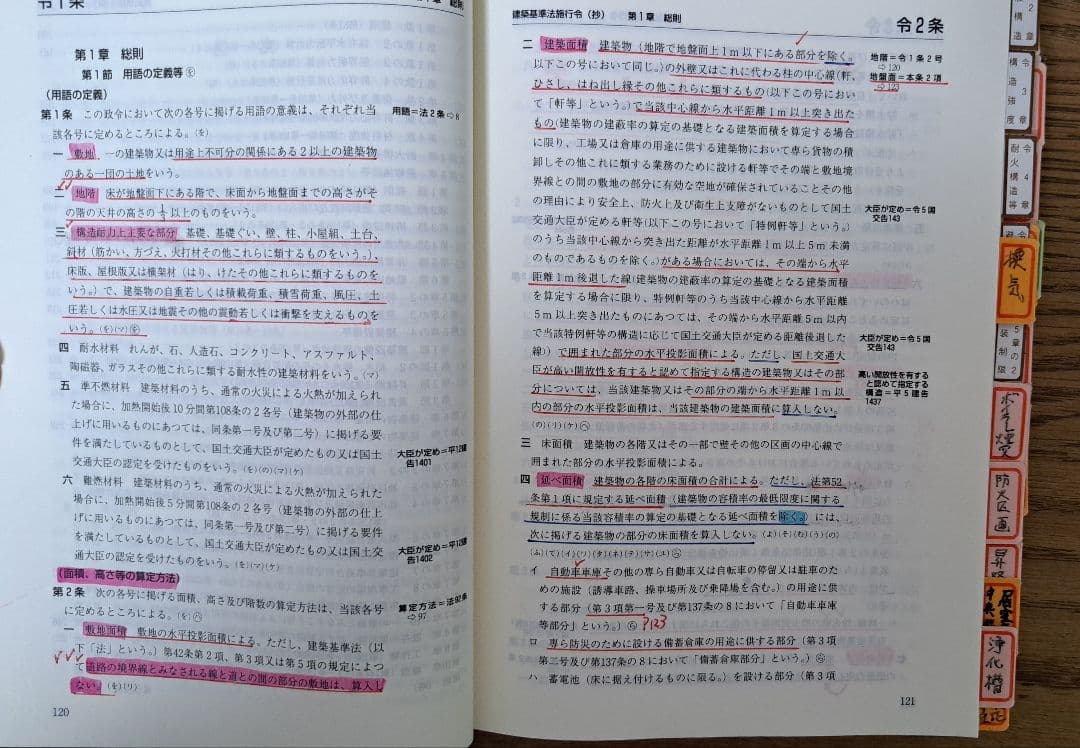 令1条
章 総則
第1章 総則
第1節 用語の定義等
(用語の定義)
第1条 この政令において次の各号に掲げる用語の意義は、それぞれ当
該各号に定めるところによる。(を)
用語=法2条⇨8
一 敷地 一の建築物又は用途上不可分の関係にある2以上の建築物
のある一団の土地をいう。
二 地階 床が地盤面下にある階で、床面から地盤面までの高さがそ
の階の天井の高さの1/3以上のものをいう。
三 構造耐力上主要な部分 基礎、基礎ぐい、壁、柱、小屋組、土台、
斜材(筋かい、方づえ、火打材その他これらに類するものをいう。)、
床版、屋根版又は横架材(はり、けたその他これらに類するものを
いう。)で、建築物の自重若しくは積載荷重、積雪荷重、風圧、土
圧若しくは水圧又は地震その他の震動若しくは衝撃を支えるものを
いう。(を)(マ)(を)
四 耐水材料 れんが、石、人造石、コンクリート、アスファルト、
陶磁器、ガラスその他これらに類する耐水性の建築材料をいう。(マ)
五 準不燃材料 建築材料のうち、通常の火災による火熱が加えられ
た場合に、加熱開始後10分間第108条の2各号(建築物の外部の仕
上げに用いるものにあつては、同条第一号及び第二号)に掲げる要
件を満たしているものとして、国土交通大臣が定めたもの又は国土
交通大臣の認定を受けたものをいう。(を)(の)(マ)(ケ)
大臣が定め=平12建
告1401
六 難燃材料 建築材料のうち、通常の火災による火熱が加えられた
場合に、加熱開始後5分間第108条の2各号(建築物の外部の仕上
げに用いるものにあつては、同条第一号及び第二号)に掲げる要件
を満たしているものとして、国土交通大臣が定めたもの又は国土交
通大臣の認定を受けたものをいう。(を)(マ)(ケ)
大臣が定め=平12建
告1402
(面積、高さ等の算定方法)
第2条 次の各号に掲げる面積、高さ及び階数の算定方法は、当該各号
に定めるところによる。(を)
算定方法=法92条
⇨97
一 敷地面積 敷地の水平投影面積による。ただし、建築基準法(以
下「法」という。)第42条第2項、第3項又は第5項の規定によつて
道路の境界線とみなされる線と道との間の部分の敷地は、算入し
ない。(を)(リ)
120
建築基準法施行令(抄) 第1章 総則
令2条
二 建築面積 建築物(地階で地盤面上1m以下にある部分を除く。
以下この号において同じ。)の外壁又はこれに代わる柱の中心線(軒、
ひさし、はね出し縁その他これらに類するもの(以下この号におい
て「軒等」という。)で当該中心線から水平距離1m以上突き出た
もの(建築物の建蔽率の算定の基礎となる建築面積を算定する場合
に限り、工場又は倉庫の用途に供する建築物において専ら貨物の積
卸しその他これに類する業務のために設ける軒等でその端と敷地境
界線との間の敷地の部分に有効な空地が確保されていることその他
の理由により安全上、防火上及び衛生上支障がないものとして国土
交通大臣が定める軒等(以下この号において「特例軒等」という。)
のうち当該中心線から突き出た距離が水平距離1m以上5m未満
のものであるものを除く。)がある場合においては、その端から水平
距離1m後退した線(建築物の建蔽率の算定の基礎となる建築面積
を算定する場合に限り、特例軒等のうち当該中心線から水平距離
5m以上突き出たものにあつては、その端から水平距離5m以内
で当該特例軒等の構造に応じて国土交通大臣が定める距離後退した
線))で囲まれた部分の水平投影面積による。ただし、国土交通大
臣が高い開放性を有すると認めて指定する構造の建築物又はその部
分については、当該建築物又はその部分の端から水平距離1m以
内の部分の水平投影面積は、当該建築物の建築面積に算入しない。
(の)(リ)(ケ)
地階=令1条2号
⇨120
地盤面=本条2項
⇨123
大臣が定め=令5国
交告143
大臣が定め=令5国
交告143
高い開放性を有する
と認めて指定する
構造=平5建告
1437
三 床面積 建築物の各階又はその一部で壁その他の区画の中心線で
囲まれた部分の水平投影面積による。
四 延べ面積 建築物の各階の床面積の合計による。ただし、法第52
条第1項に規定する延べ面積(建築物の容積率の最低限度に関する
規制に係る当該容積率の算定の基礎となる延べ面積を除く。)には、
次に掲げる建築物の部分の床面積を算入しない。(よ)(そ)(む)(う)(の)
(ふ)(て)(イ)(リ)(タ)(ネ)(テ)(サ)(ユ)
イ 自動車車庫その他の専ら自動車又は自転車の停留又は駐車のた
めの施設(誘導車路、操車場所及び乗降場を含む。)の用途に供
する部分(第3項第一号及び第137条の8において「自動車車庫
等部分」という。) P123
ロ 専ら防災のために設ける備蓄倉庫の用途に供する部分(第3項
第二号及び第137条の8において「備蓄倉庫部分」という。)
ハ 蓄電池(床に据え付けるものに限る。)を設ける部分(第3項
121
構造 2章
構造強度 令3章
耐火構造等 令4章
換気
装制限 5章の2
ボイラー煙突
防火区画
昇降
浄化槽